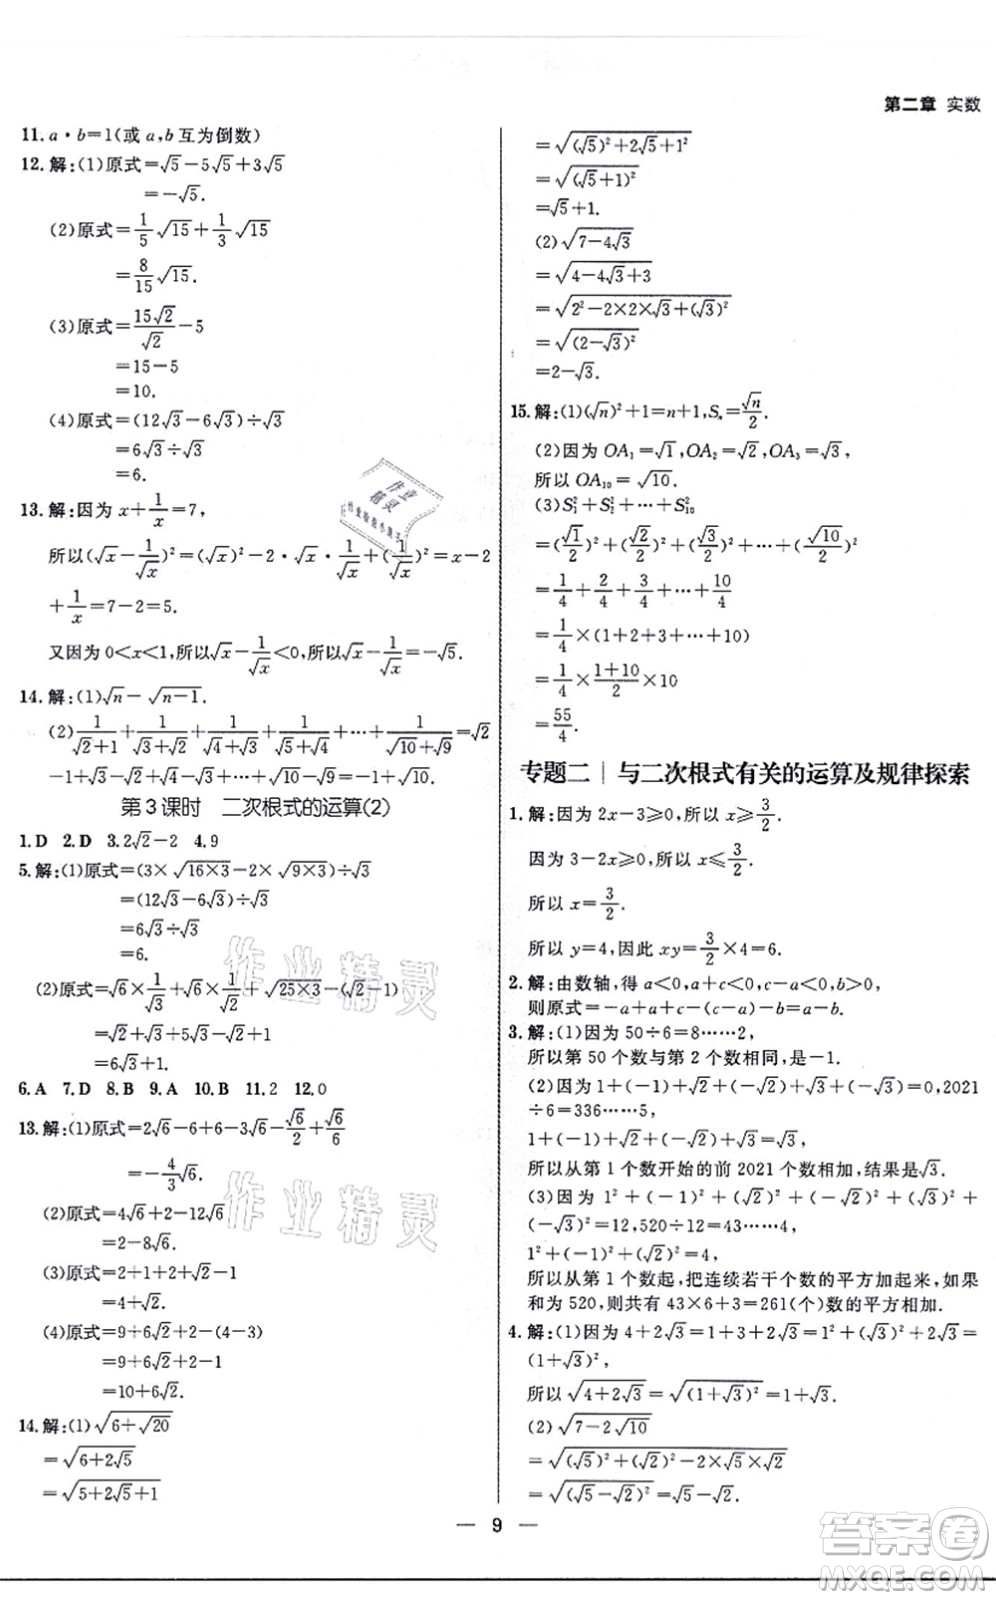 第二章 实数
11. a·b=1(或 a,b 互为倒数)
12. 解:(1)原式=√5-5√5+3√5
=-√5.
(2)原式=1/5√15+1/3√15
=8/15√15.
(3)原式=15√2/√2-5
=15-5
=10.
(4)原式=(12√3-6√3)÷√3
=6√3÷√3
=6.
13. 解:因为 x+1/x=7,
所以(√x-1/√x)²=(√x)²-2·√x·1/√x+(1/√x)²=x-2
+1/x=7-2=5.
又因为 0<x<1,所以√x-1/√x<0,所以√x-1/√x=-√5.
14. 解:(1)√n-√(n-1).
(2)1/(√2+1)+1/(√3+√2)+1/(√4+√3)+1/(√5+√4)+…+1/(√10+√9)=√2
-1+√3-√2+√4-√3+√5-√4+…+√10-√9=-1+√10.
第 3 课时 二次根式的运算(2)
1. D 2. D 3. 2√2-2 4. 9
5. 解:(1)原式=(3×√(16×3)-2×√(9×3))÷√3
=(12√3-6√3)÷√3
=6√3÷√3
=6.
(2)原式=√6×1/√3+√6×1/√2+√(25×3)-(√2-1)
=√2+√3+5√3-√2+1
=6√3+1.
6. A 7. D 8. B 9. A 10. B 11. 2 12. 0
13. 解:(1)原式=2√6-6+6-3√6-√6/2+√6/6
=-4/3√6.
(2)原式=4√6+2-12√6
=2-8√6.
(3)原式=2+1+√2+1
=4+√2.
(4)原式=9+6√2+2-(4-3)
=9+6√2+2-1
=10+6√2.
14. 解:(1)√(6+√20)
=√(6+2√5)
=√(5+2√5+1)
=√((√5)²+2√5+1²)
=√((√5+1)²)
=√5+1.
(2)√(7-4√3)
=√(4-4√3+3)
=√(2²-2×2×√3+(√3)²)
=√((2-√3)²)
=2-√3.
15. 解:(1)(√n)²+1=n+1,Sₙ=√n/2.
(2)因为 OA₁=√1,OA₂=√2,OA₃=√3,
所以 OA₁₀=√10.
(3)S₁²+S₂²+…+S₁₀²
=(√1/2)²+(√2/2)²+(√3/2)²+…+(√10/2)²
=1/4+2/4+3/4+…+10/4
=1/4×(1+2+3+…+10)
=1/4×(1+10)/2×10
=55/4.
专题二 | 与二次根式有关的运算及规律探索
1. 解:因为 2x-3⩾0,所以 x⩾3/2.
因为 3-2x⩾0,所以 x⩽3/2.
所以 x=3/2.
所以 y=4,因此 xy=3/2×4=6.
2. 解:由数轴,得 a<0,a+c<0,c-a<0,b>0,
则原式=-a+a+c-(c-a)-b=a-b.
3. 解:(1)因为 50÷6=8……2,
所以第 50 个数与第 2 个数相同,是-1.
(2)因为 1+(-1)+√2+(-√2)+√3+(-√3)=0,2021
÷6=336……5,
1+(-1)+√2+(-√2)+√3=√3,
所以从第 1 个数开始的前 2021 个数相加,结果是√3.
(3)因为 1²+(-1)²+(√2)²+(-√2)²+(√3)²+
(-√3)²=12,520÷12=43……4,
1²+(-1)²+(√2)²=4,
所以从第 1 个数起,把连续若干个数的平方加起来,如果
和为 520,则共有 43×6+3=261(个)数的平方相加.
4. 解:(1)因为 4+2√3=1+3+2√3=1²+(√3)²+2√3=
(1+√3)²,
所以√(4+2√3)=√((1+√3)²)=1+√3.
(2)√(7-2√10)
=√((√5)²+(√2)²-2×√5×√2)
=√((√5-√2)²)=√5-√2.
— 9 —
作业精灵
作业精灵
作业精灵
答案圈
MXQE.COM